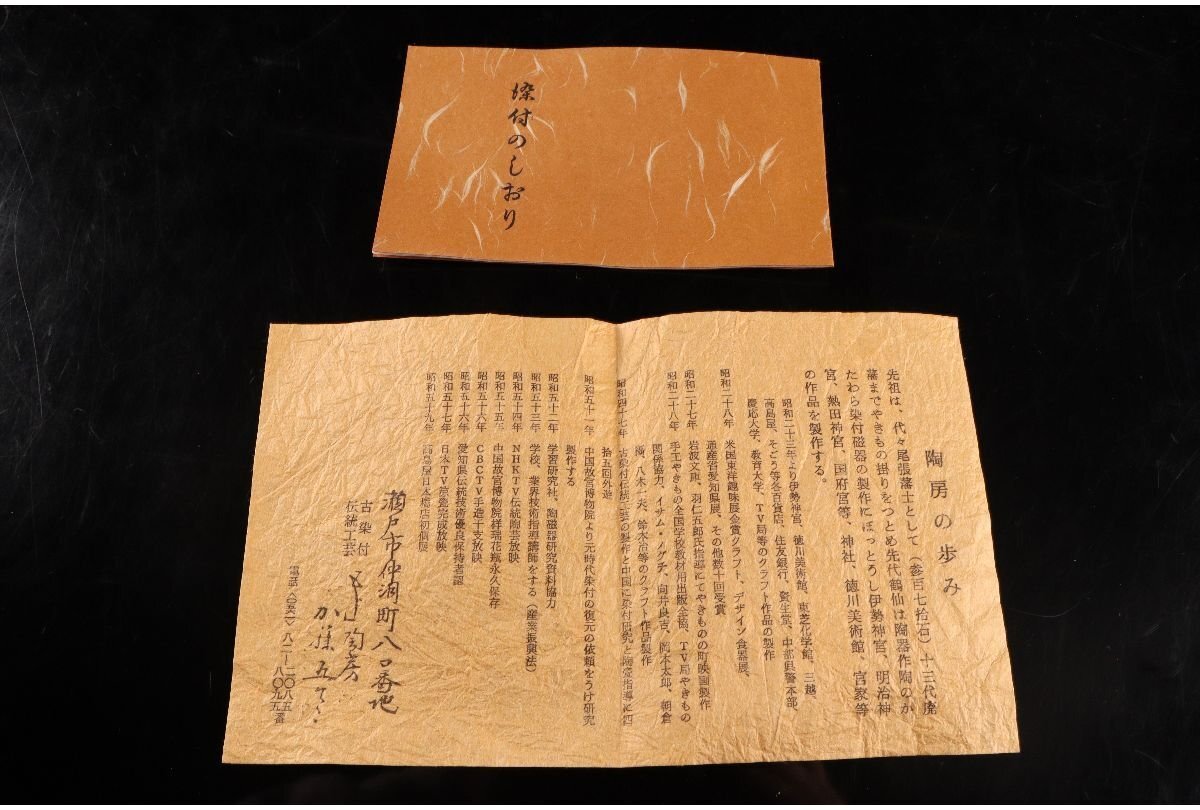 染付のしおり
陶房の歩み
先祖は、代々尾張藩士として(参百七拾石)十三代廃
藩までやきもの掛りをつとめ先代鶴仙は陶器作陶のか
たわら染付磁器の製作にぼっとうし伊勢神宮、明治神
宮、熱田神宮、国府宮等、神社、徳川美術館、宮家等
の作品を製作する。
昭和二十三年より伊勢神宮、徳川美術館、東芝化学館、三越、
高島屋、そごう等各百貨店、住友銀行、資生堂、中部県警本部、
慶応大学、教育大学、TV局等のクラフト作品の製作
昭和二十八年 米国東洋趣味展金賞クラフト、デザイン食器展、
通産省愛知県展、その他数十回受賞
昭和二十七年 岩波文庫、羽仁五郎氏指導にてやきものの町映画製作
昭和二十八年 手工やきもの全国学校教材用出版企画、TV局やきもの
関係協力、イサム・ノグチ、向井良吉、岡本太郎、朝倉
摂、八木一夫、鈴木治等のクラフト作品製作
昭和四十七年 古染付伝統工芸の製作と中国に染付研究と陶瓷指導に四
拾五回外遊
昭和五十一年 中国故宮博物院より元時代染付の復元の依頼をうけ研究
製作する
昭和五十二年 学習研究社、陶磁器研究資料協力
昭和五十三年 学校、業界技術指導講師をする(産業振興法)
昭和五十四年 NHKTV伝統陶芸放映
昭和五十五年 中国故宮博物院祥瑞花瓶永久保存
昭和五十六年 CBCTV手造干支放映
昭和五十六年 愛知県伝統技術優良保持者認
昭和五十七年 日本TV夢壺完成放映
昭和五十九年 高島屋日本橋店初個展
瀬戸市仲洞町八口番地
古染付
伝統工芸
陶房
加藤五
電話〈〇五六一〉八二—二〇八五番
八〇九五